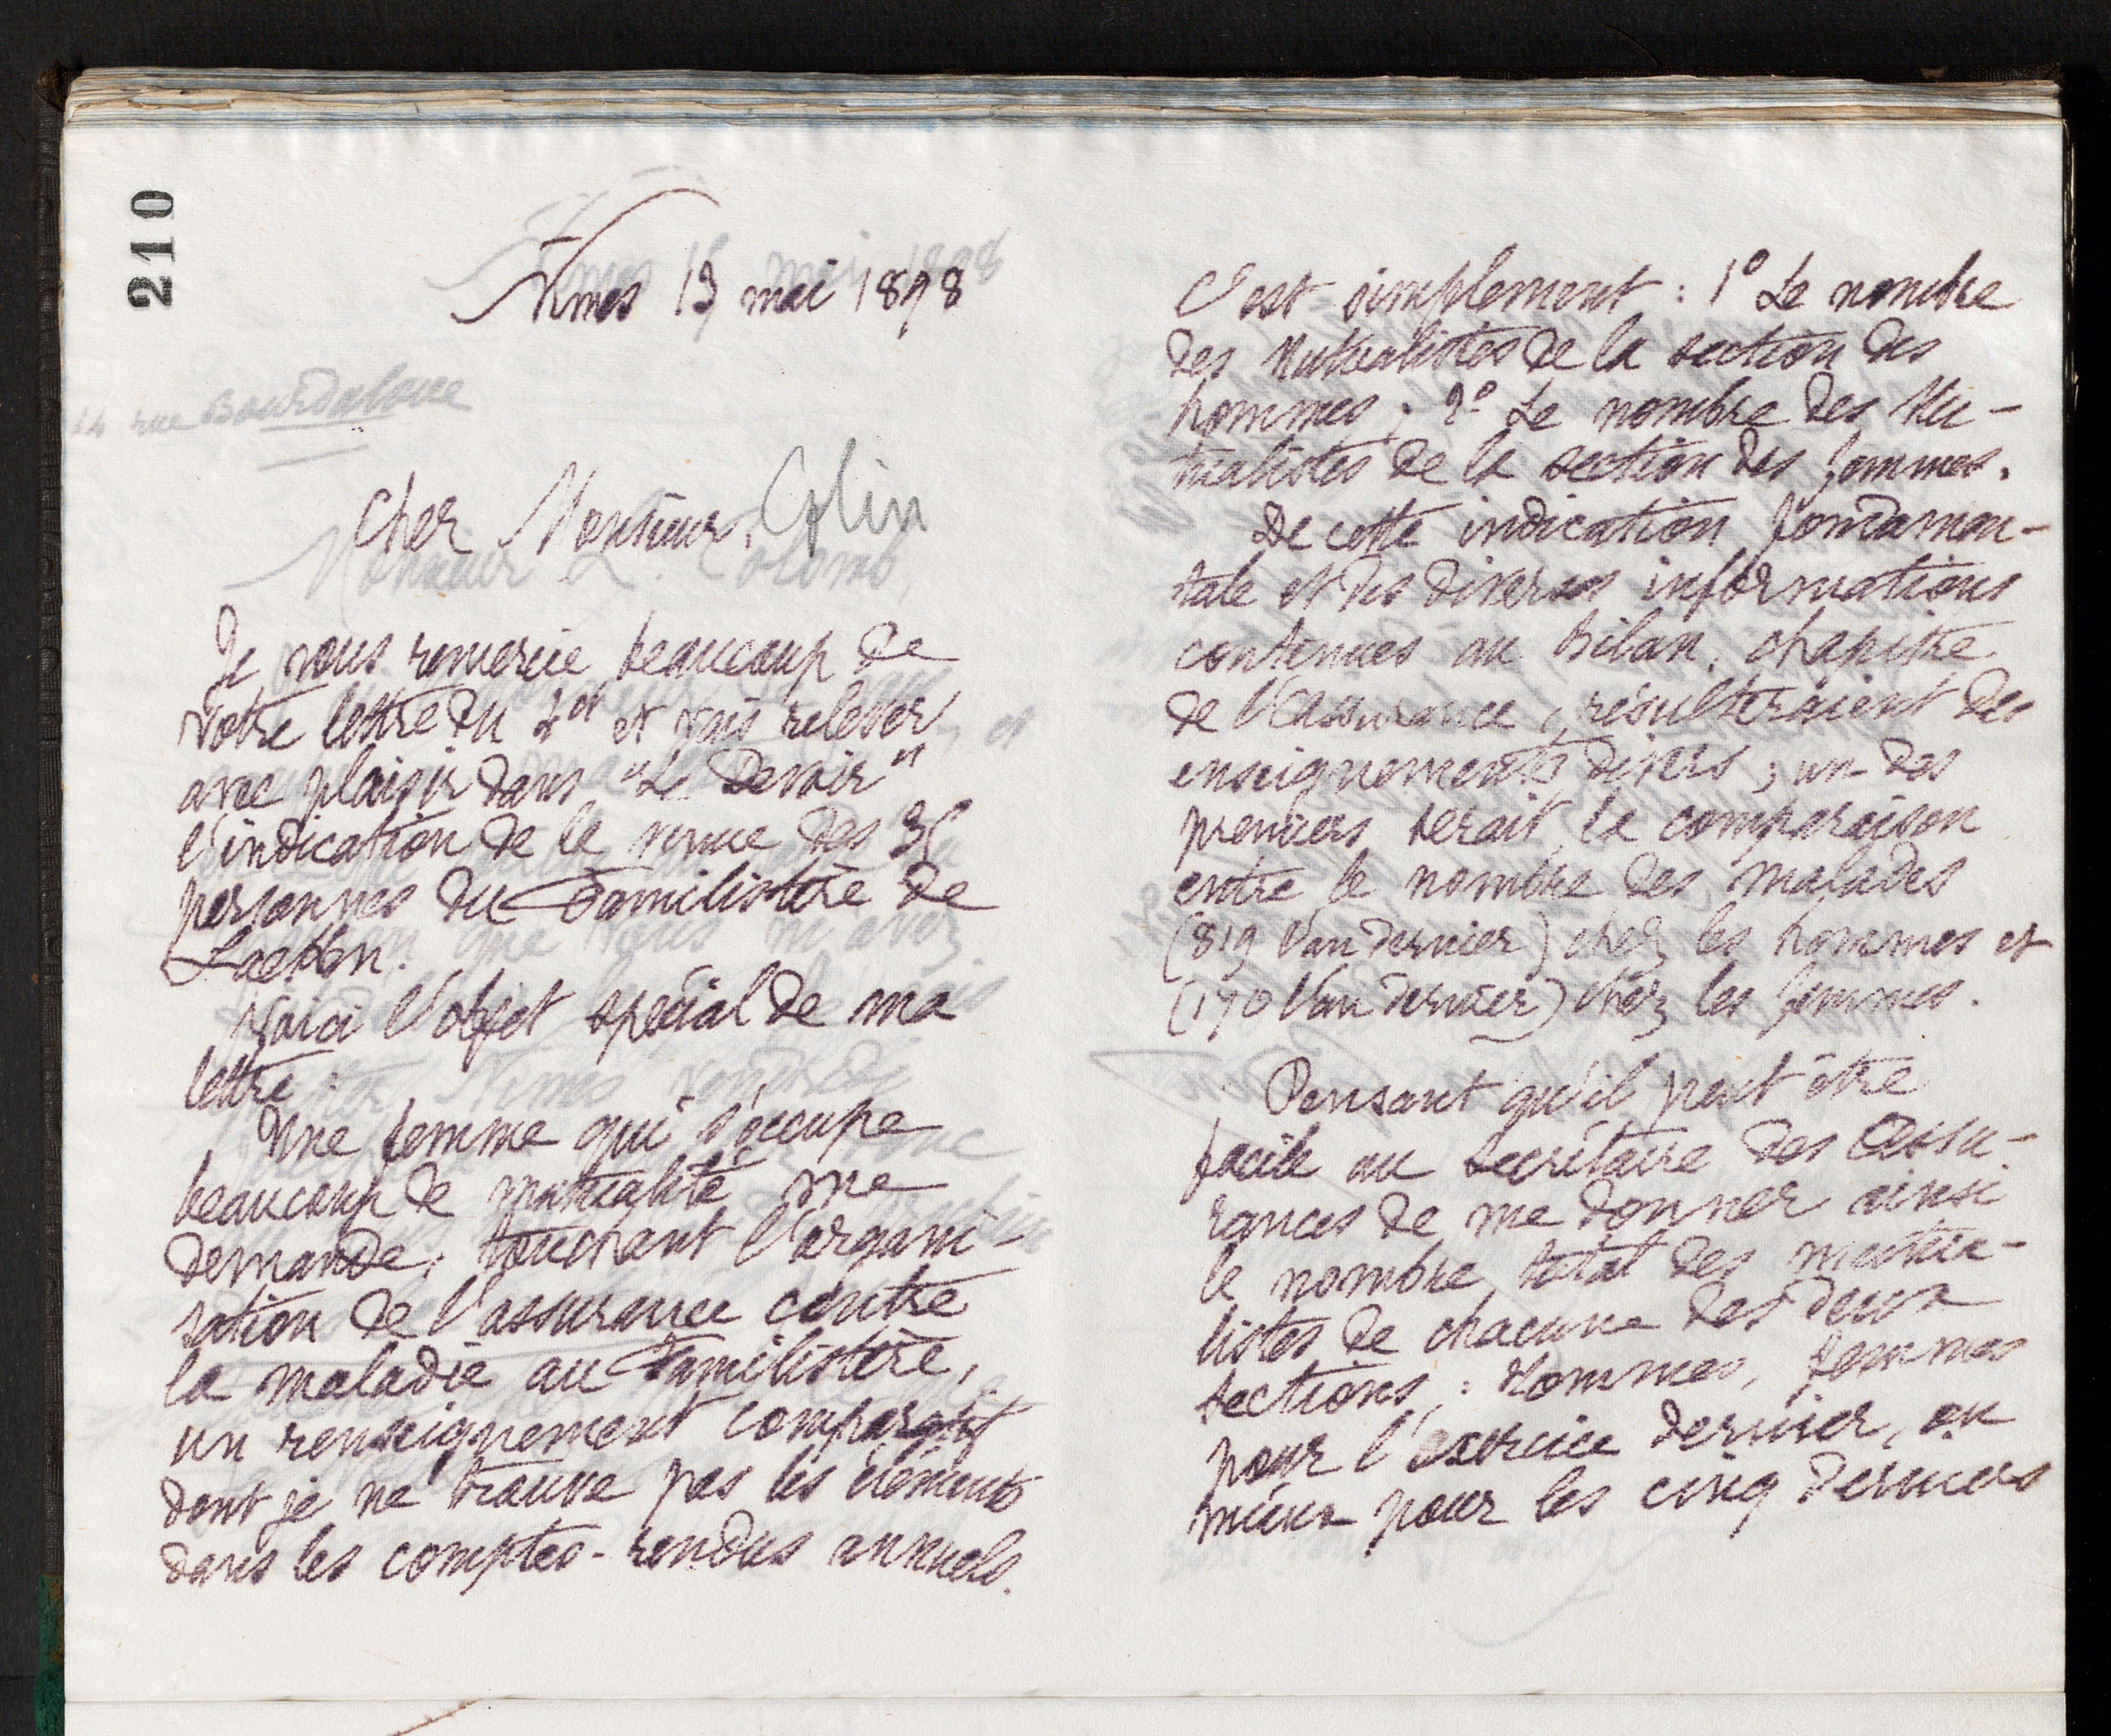 210
Nîmes 13 mai 1898
14 rue Bourdaloue
Cher Monsieur, Colin
Je vous remercie beaucoup de
votre lettre du et vais relever
avec plaisir dans "Le Devoir"
l'indication de la venue des 35
personnes du Familistère de
Laeken.
Voici l'objet spécial de ma
lettre :
Une femme qui s'occupe
beaucoup de mutualité me
demande, touchant l'organi-
sation de l'assurance contre
la maladie au Familistère,
un renseignement comparatif
dont je ne trouve pas les éléments
dans les comptes-rendus annuels.
C'est simplement : 1° Le nombre
des Mutualistes de la section des
hommes ; 2° Le nombre des Mu-
tualistes de la section des femmes.
De cette indication fondamen-
tale et des diverses informations
contenues au Bilan, chapitre
de l'Assurance, résulteraient des
enseignements divers ; un des
premiers serait la comparaison
entre le nombre des malades
(819 l'an dernier) chez les hommes et
(170 l'an dernier) chez les femmes.
Pensant qu'il peut être
facile au Secrétaire des Assu-
rances de me donner ainsi
le nombre total des mutua-
listes de chacune des deux
sections : Hommes, femmes
pour l'exercice dernier, ou
mieux pour les cinq derniers